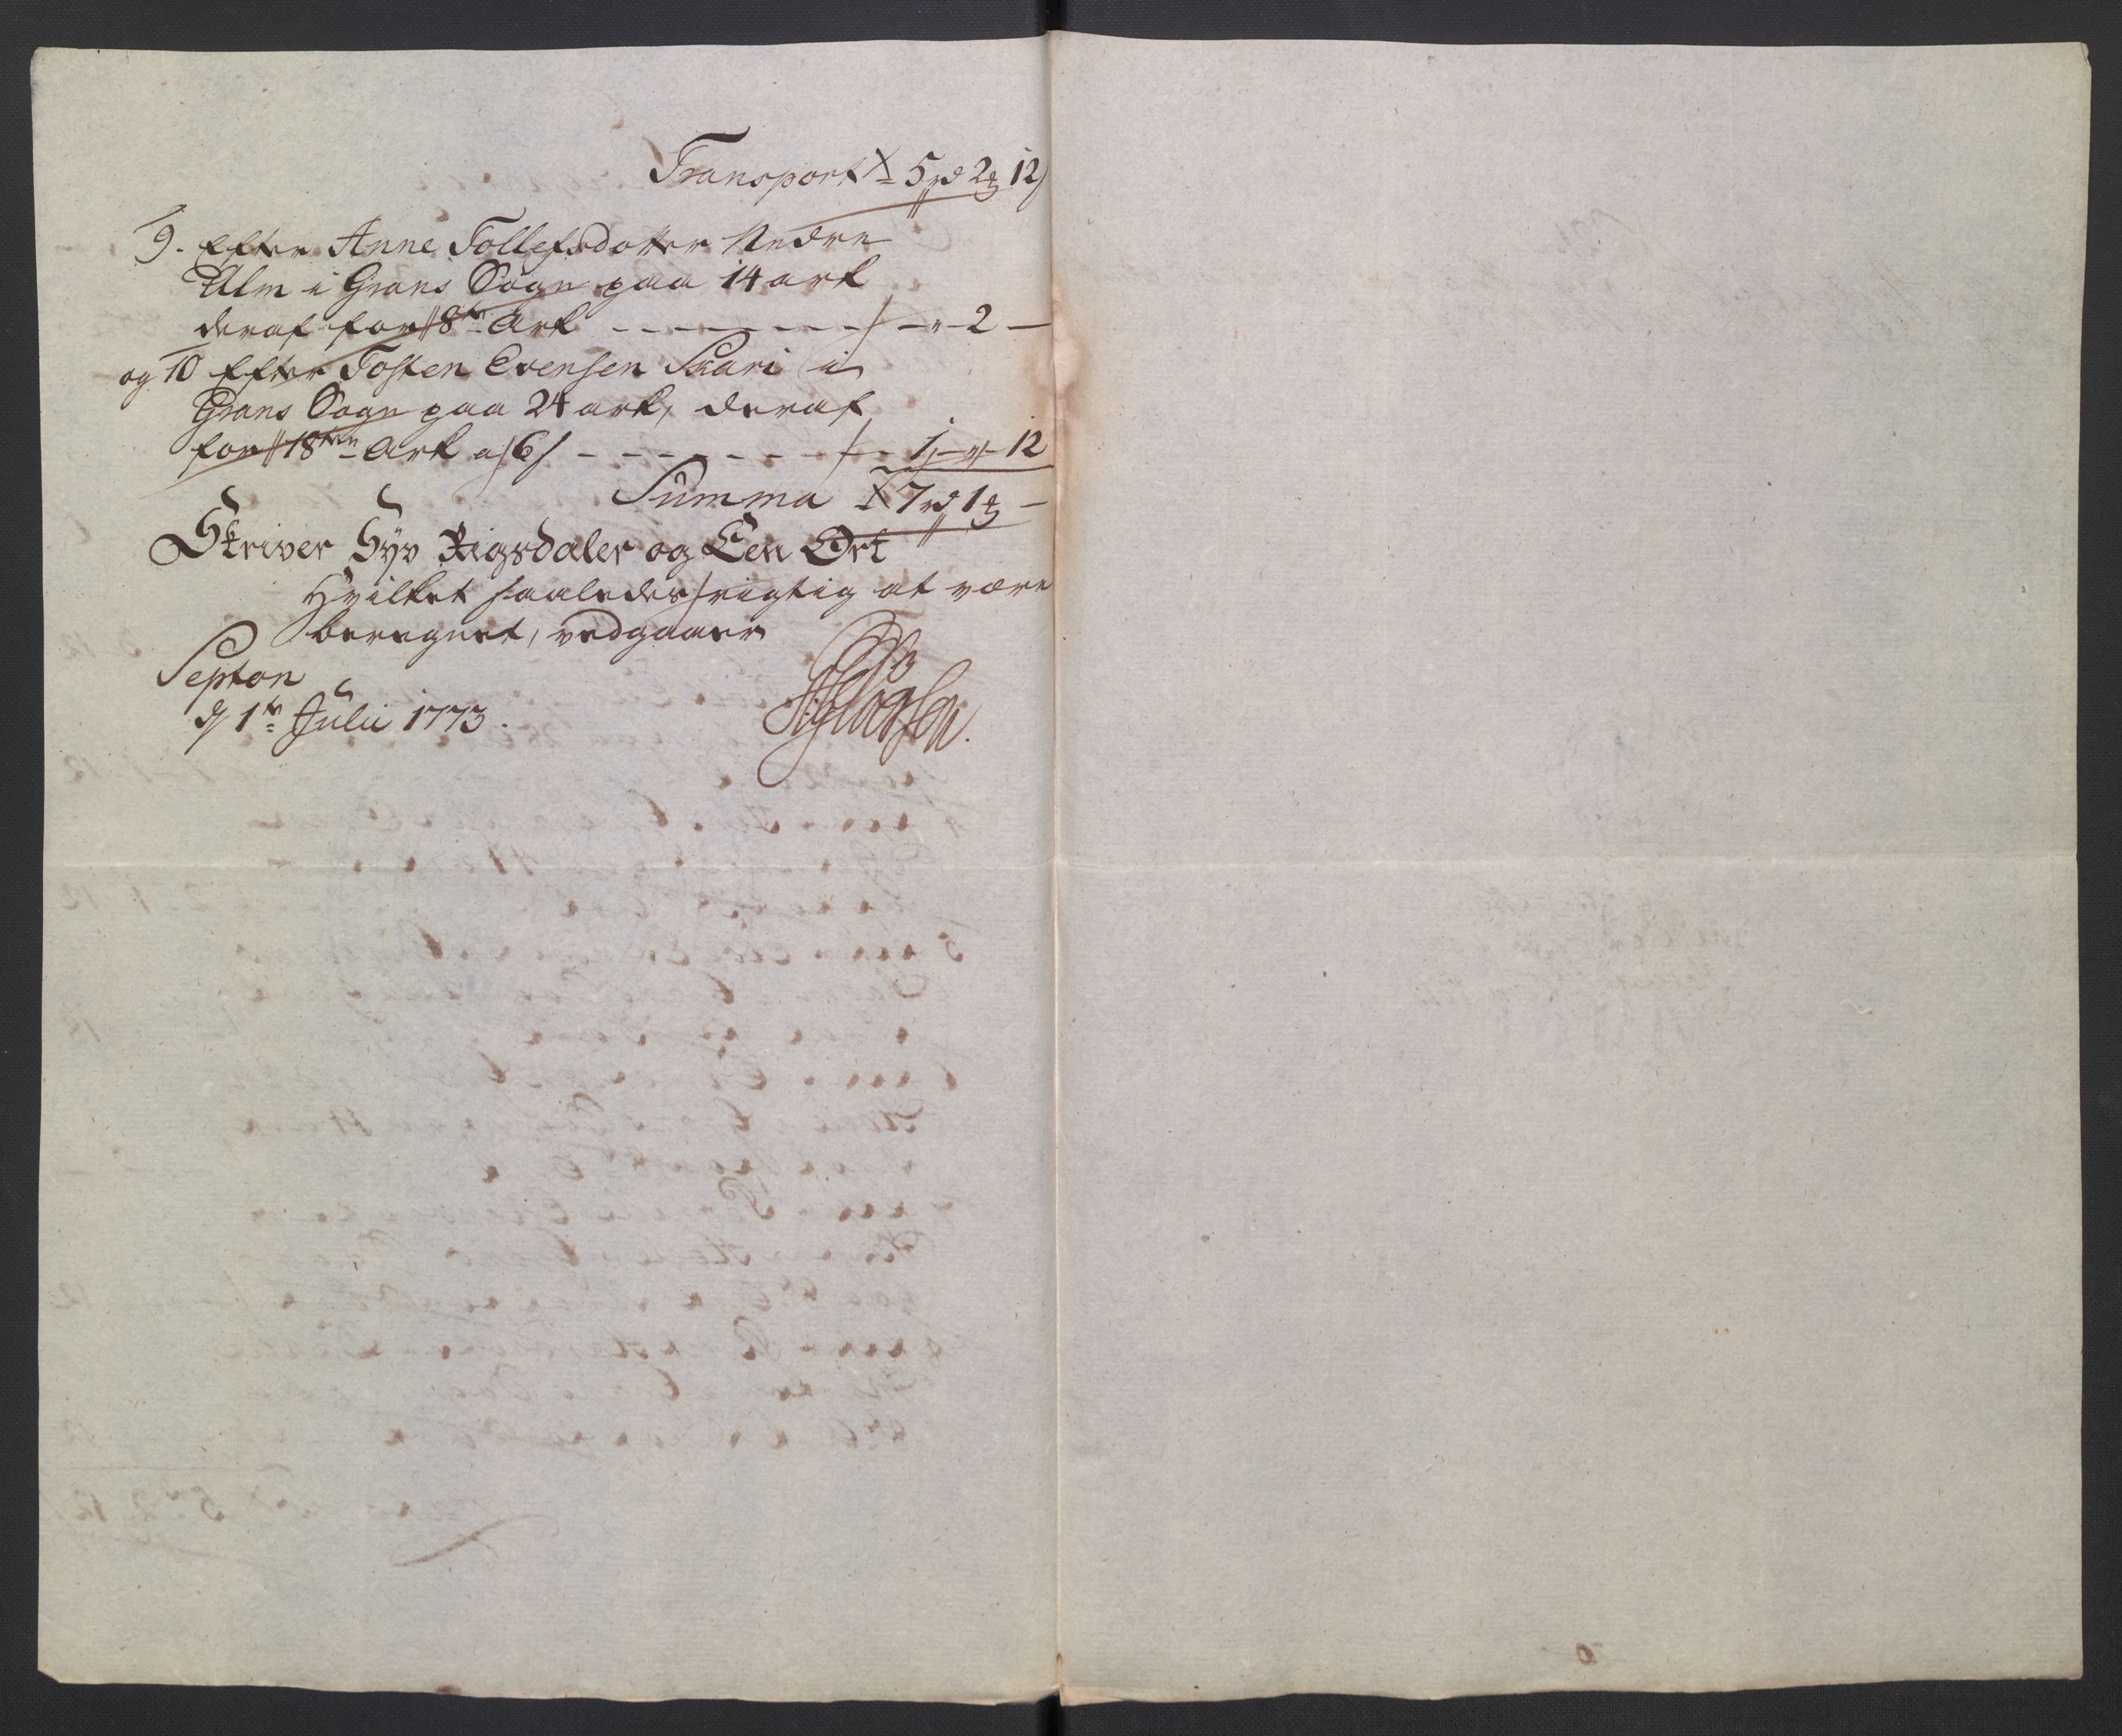 Transport 5 rd 2 12
9. Efter Anne Tollefsdotter Nedre
Ulm i Grans Sogn paa 14 ark
deraf for 8te Ark - - - - - - - „ - 2 -
og 10 Efter Tosten Evensen Skari i
Grans Sogn paa 24 ark, deraf
for 18ten Ark a 6 - - - - - - 1 - „ - 12
Summa 7 rd 1 -
Skriver Syv Rigsdaler og Een Ort
Hvilket saaledes rigtig at være
beregnet, vedgaaer
Septon
d 1te Julii 1773.